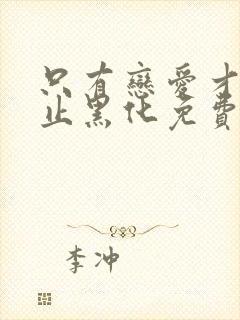 只有戀愛才
止黑化免費
李冲